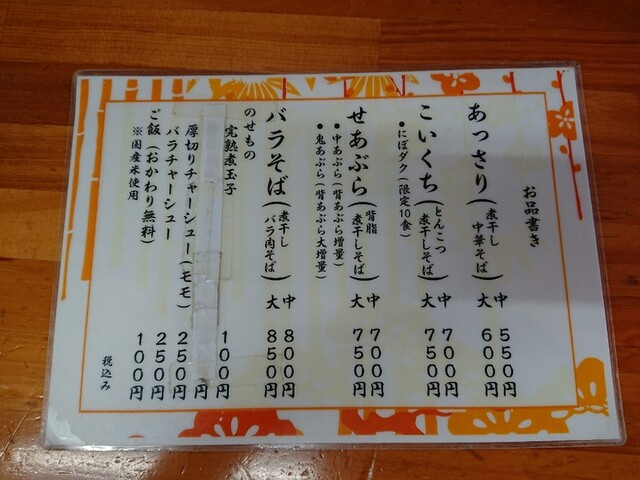 お品書き
あっさり(煮干し中華そば) 中 550円
大 600円
こいくち(とんこつ煮干しそば) 中 700円
大 750円
●にぼダク(限定10食)
せあぶら(背脂煮干しそば) 中 700円
大 750円
●中あぶら(背あぶら増量)
●鬼あぶら(背あぶら大増量)
バラそば(煮干しバラ肉そば) 中 800円
大 850円
のせもの
完熟煮玉子 100円
円
厚切りチャーシュー(モモ) 250円
バラチャーシュー 250円
ご飯(おかわり無料) 100円
※国産米使用
税込み